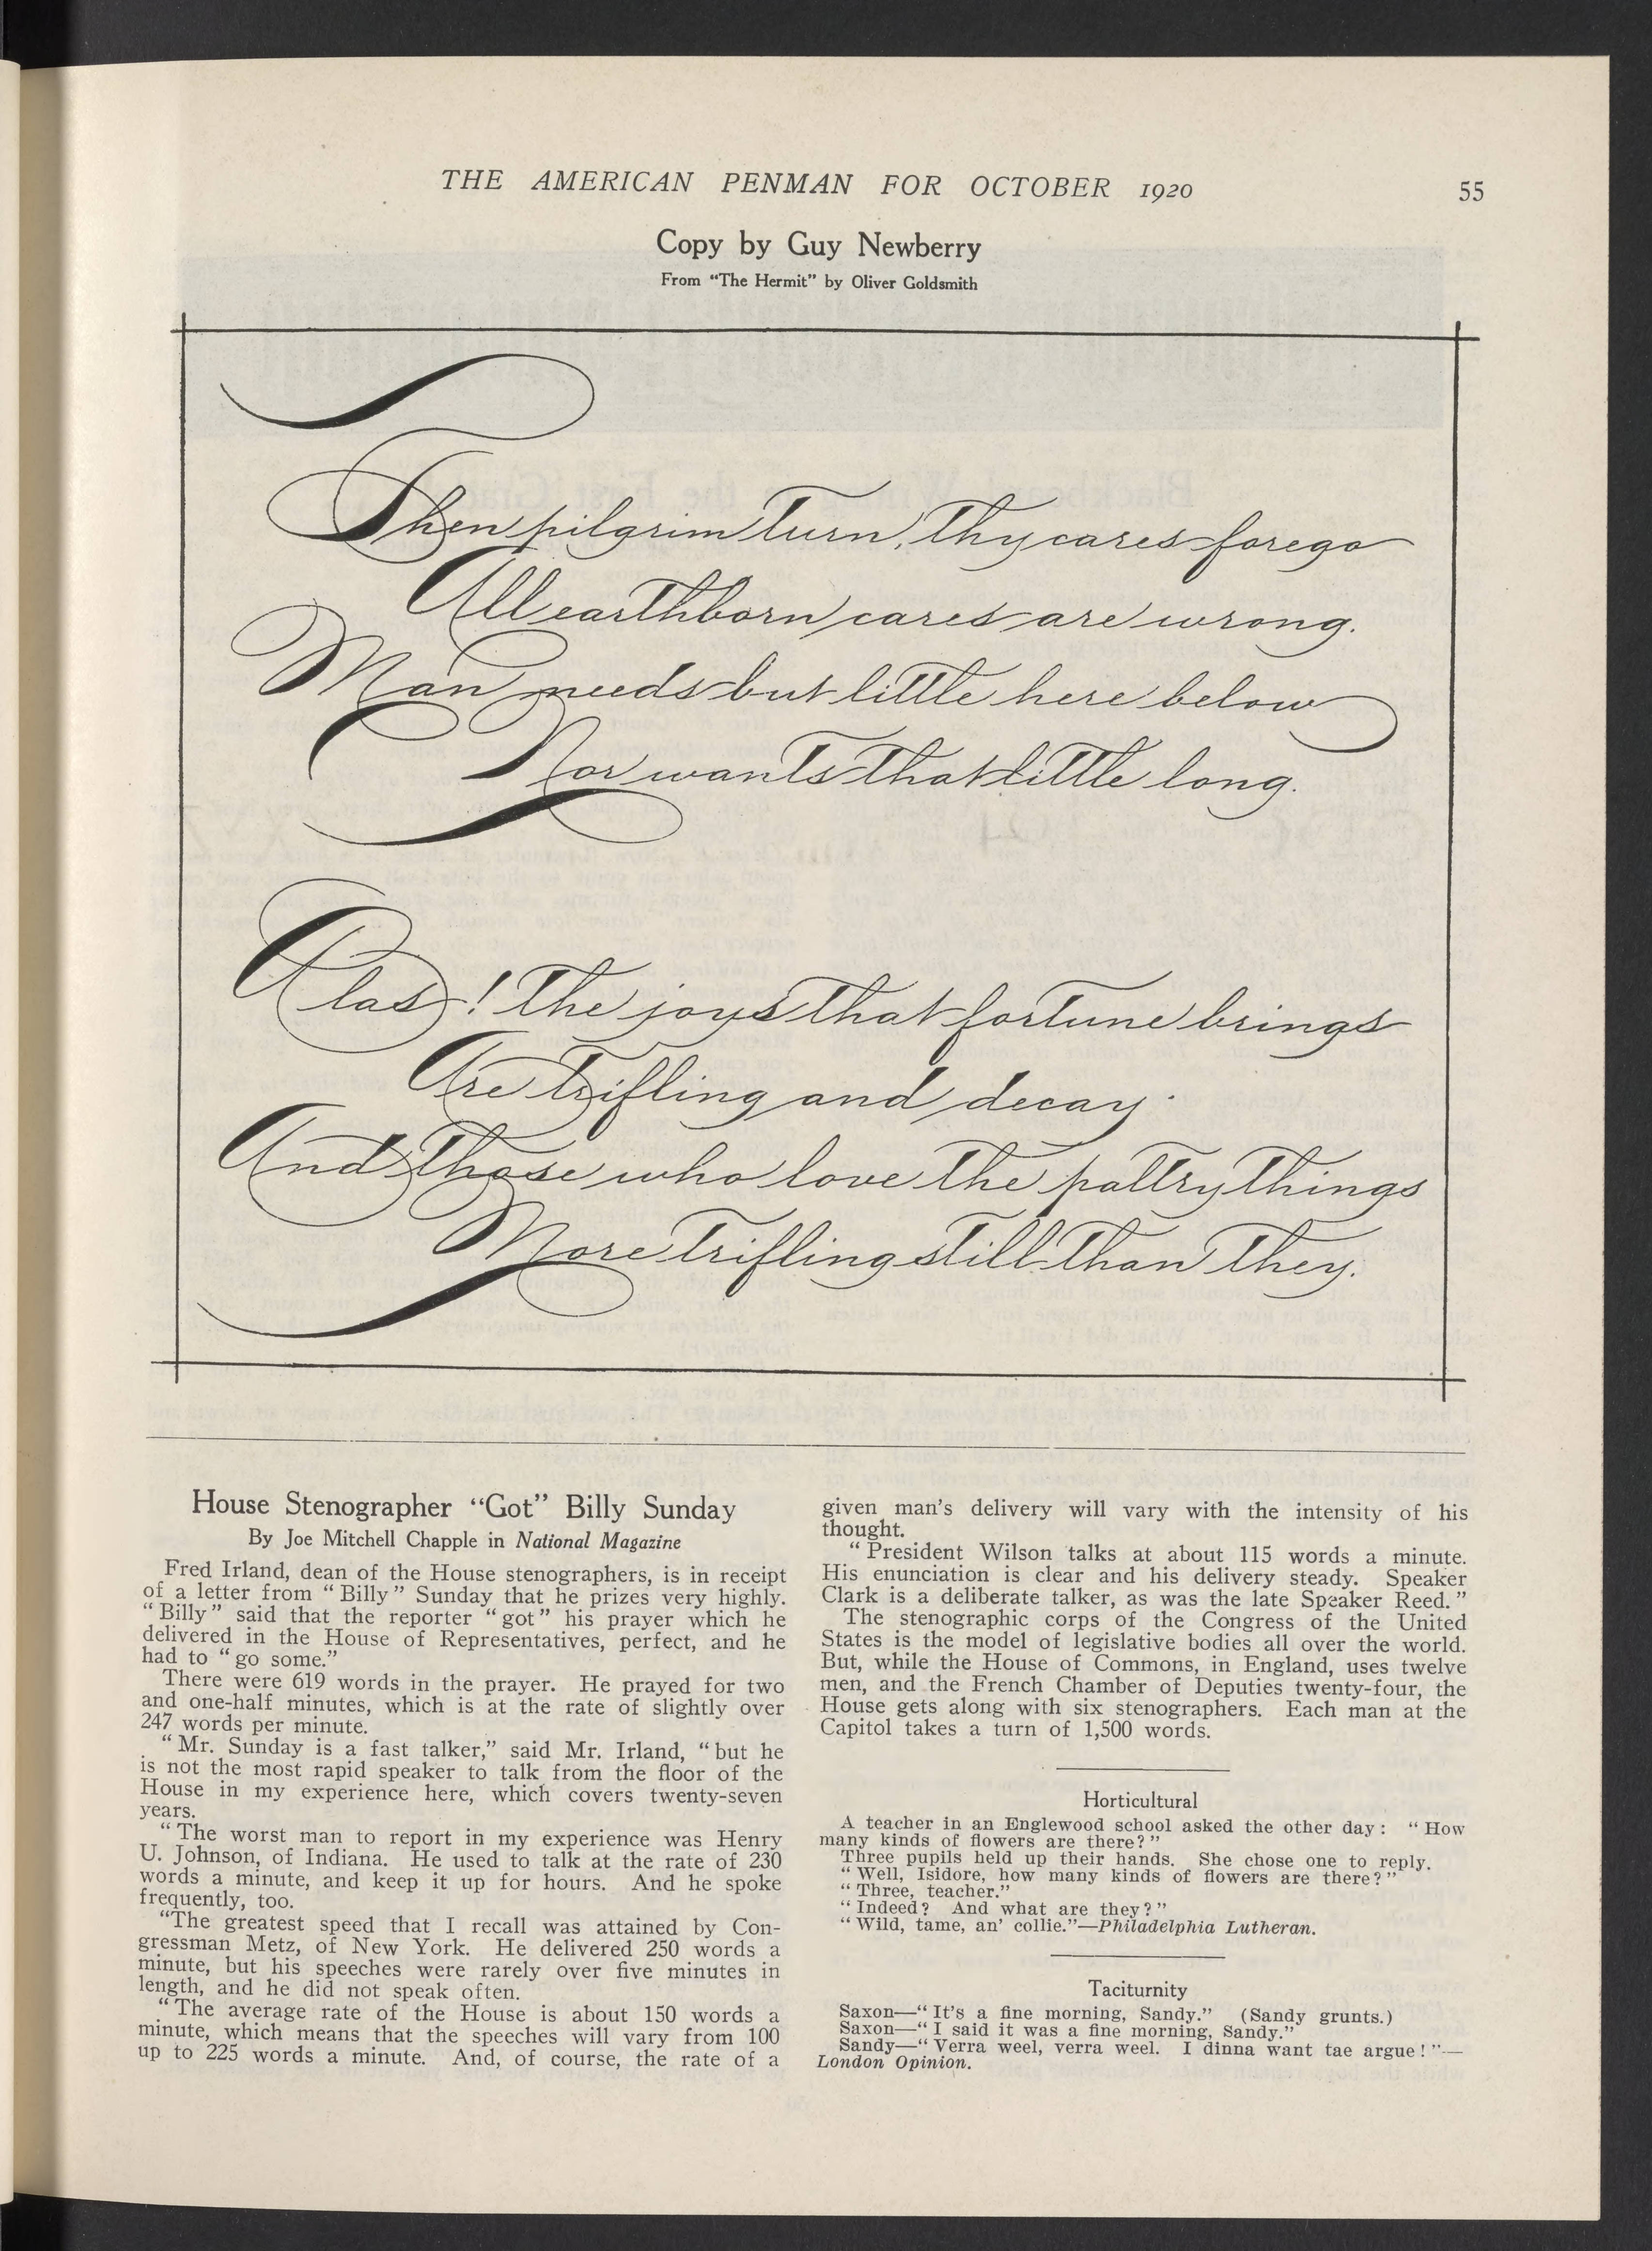 THE AMERICAN PENMAN FOR OCTOBER 1920
55
Copy by Guy Newberry
From "The Hermit" by Oliver Goldsmith
Then pilgrim turn, thy cares forego
All earthborn cares are wrong.
Man needs but little here below
Nor wants that little long.
Alas! the joys that fortune brings
Are trifling and decay.
And those who love the paltry things
More trifling still than they.
House Stenographer "Got" Billy Sunday
By Joe Mitchell Chapple in National Magazine
Fred Irland, dean of the House stenographers, is in receipt
of a letter from "Billy" Sunday that he prizes very highly.
"Billy" said that the reporter "got" his prayer which he
delivered in the House of Representatives, perfect, and he
had to "go some."
There were 619 words in the prayer. He prayed for two
and one-half minutes, which is at the rate of slightly over
247 words per minute.
"Mr. Sunday is a fast talker," said Mr. Irland, "but he
is not the most rapid speaker to talk from the floor of the
House in my experience here, which covers twenty-seven
years.
"The worst man to report in my experience was Henry
U. Johnson, of Indiana. He used to talk at the rate of 230
words a minute, and keep it up for hours. And he spoke
frequently, too.
"The greatest speed that I recall was attained by Con-
gressman Metz, of New York. He delivered 250 words a
minute, but his speeches were rarely over five minutes in
length, and he did not speak often.
"The average rate of the House is about 150 words a
minute, which means that the speeches will vary from 100
up to 225 words a minute. And, of course, the rate of a
given man's delivery will vary with the intensity of his
thought.
"President Wilson talks at about 115 words a minute.
His enunciation is clear and his delivery steady. Speaker
Clark is a deliberate talker, as was the late Speaker Reed."
The stenographic corps of the Congress of the United
States is the model of legislative bodies all over the world.
But, while the House of Commons, in England, uses twelve
men, and the French Chamber of Deputies twenty-four, the
House gets along with six stenographers. Each man at the
Capitol takes a turn of 1,500 words.
Horticultural
A teacher in an Englewood school asked the other day: "How
many kinds of flowers are there?"
Three pupils held up their hands. She chose one to reply.
"Well, Isidore, how many kinds of flowers are there?"
"Three, teacher."
"Indeed? And what are they?"
"Wild, tame, an' collie."—Philadelphia Lutheran.
Taciturnity
Saxon—"It's a fine morning, Sandy." (Sandy grunts.)
Saxon—"I said it was a fine morning, Sandy."
Sandy—"Verra weel, verra weel. I dinna want tae argue!"—
London Opinion.